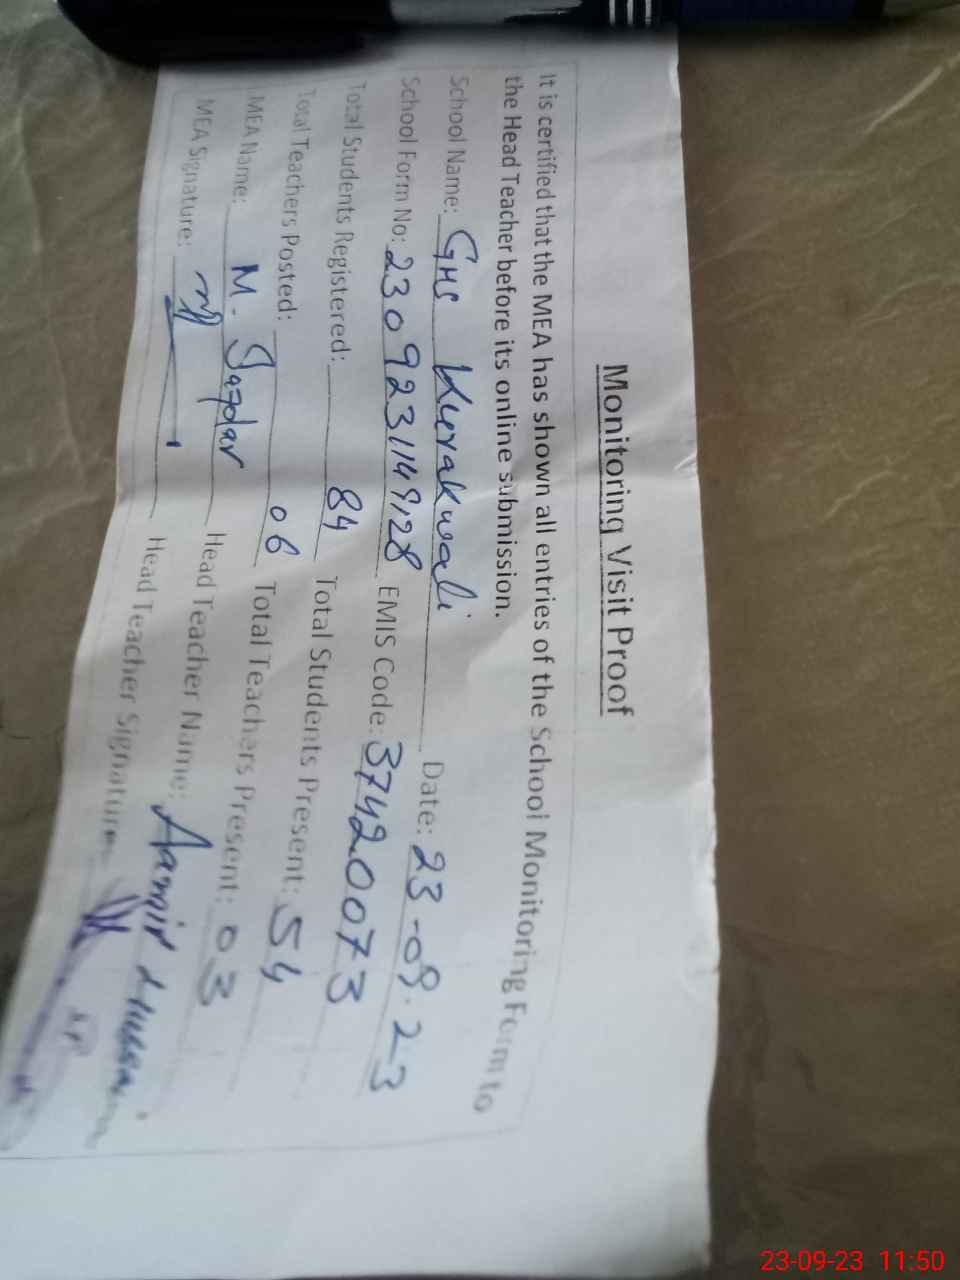 Monitoring Visit Proof
It is certified that the MEA has shown all entries of the School Monitoring Form to
the Head Teacher before its online submission.
School Name: GHS Kurakwali Date: 23-09-23
School Form No: 2309231149128 EMIS Code: 37420073
Total Students Registered: 84 Total Students Present: 54
Total Teachers Posted: 06 Total Teachers Present: 03
MEA Name: M. Safdar Head Teacher Name: Aamir Hussain
MEA Signature: Head Teacher Signature:
23-09-23 11:50